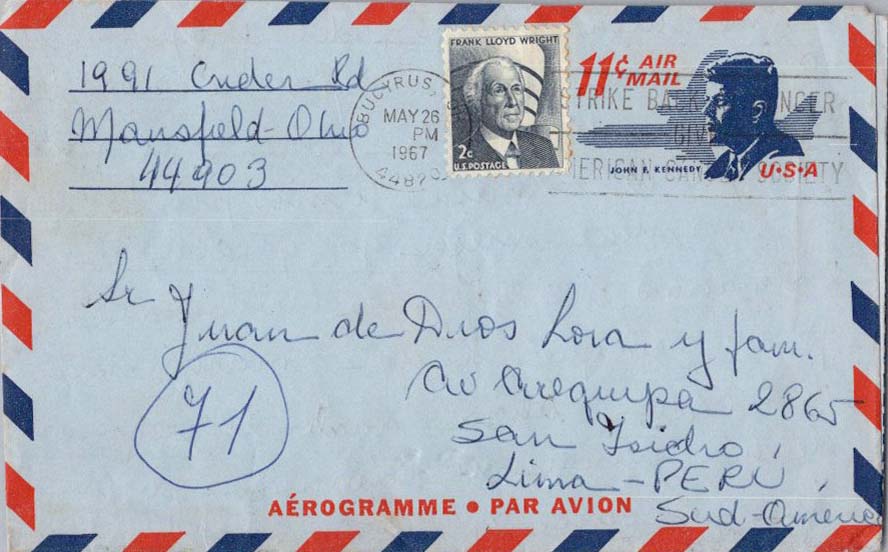 1991 Cruder Rd
Mansfield-Ohio
44903
BUCYRUS,
MAY 26
PM
1967
FRANK LLOYD WRIGHT
2c
U.S. POSTAGE
11¢ AIR
MAIL
STRIKE BACK
GIVE
AMERICAN CANCER SOCIETY
JOHN F. KENNEDY
U•S•A
Sr Juan de Dios Lora y fam.
Av Arequipa 2865
San Isidro,
Lima-PERU,
Sud-America
71
AÉROGRAMME • PAR AVION